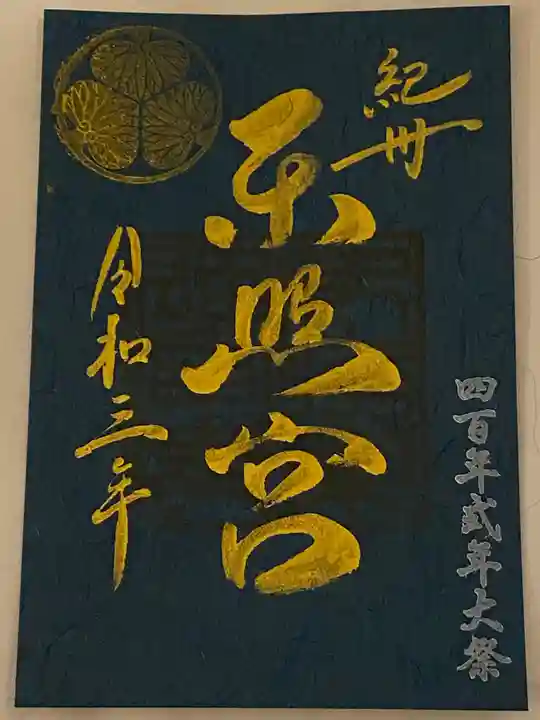 紀州
東照宮
令和三年
四百年式年大祭